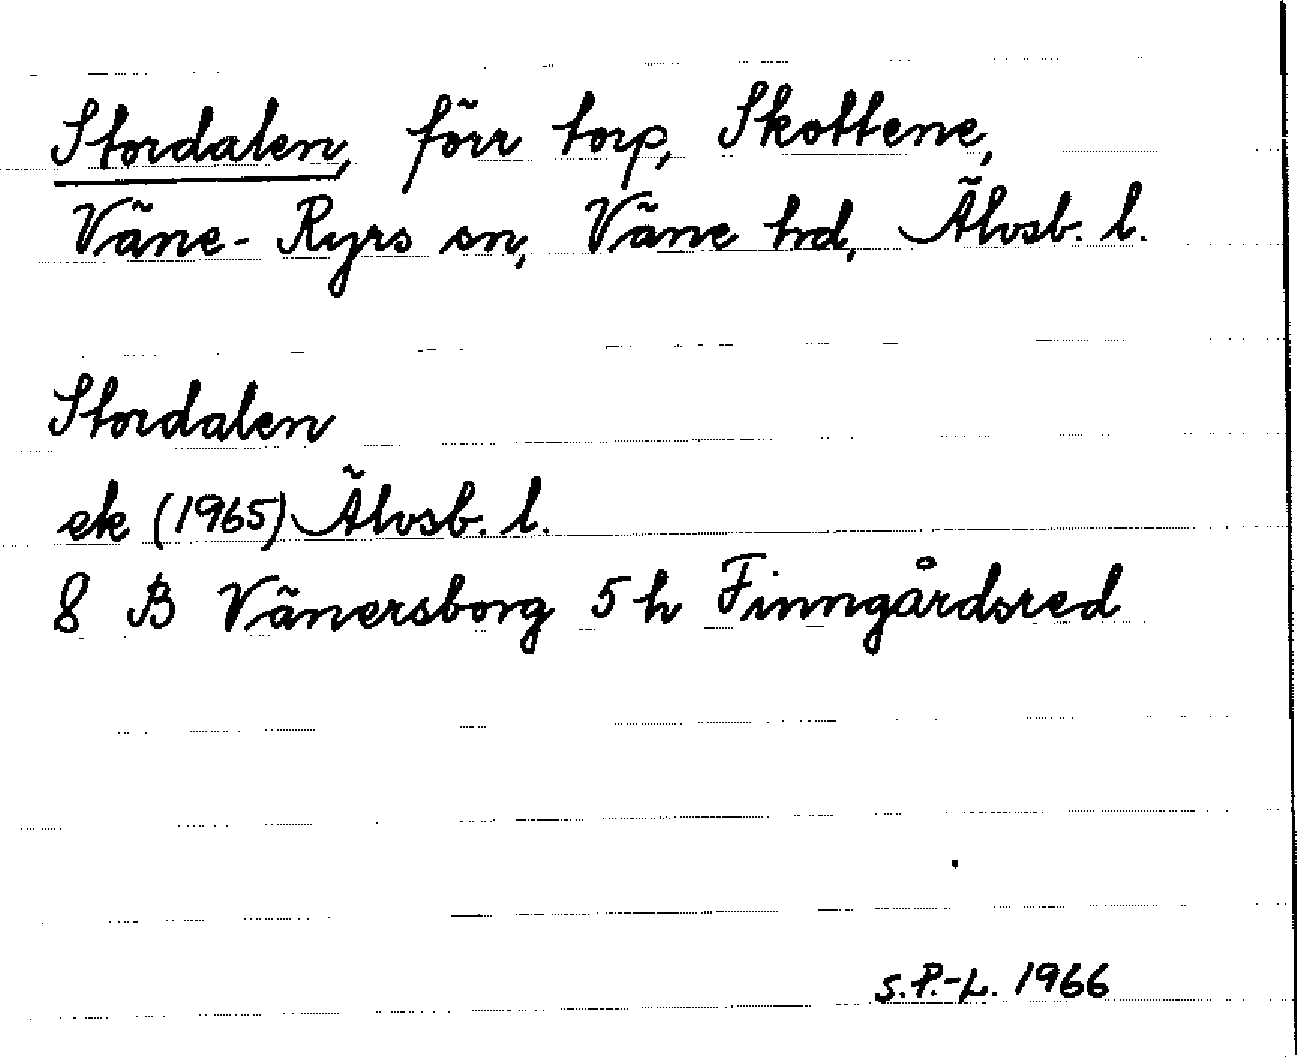 Stordalen, förr torp, Skottene,
Väne-Ryrs sn, Väne hd, Älvsb. l.
Stordalen
ek (1965) Älvsb. l.
8 B Vänersborg 5 h Finngårdsred
S.P.-L. 1966